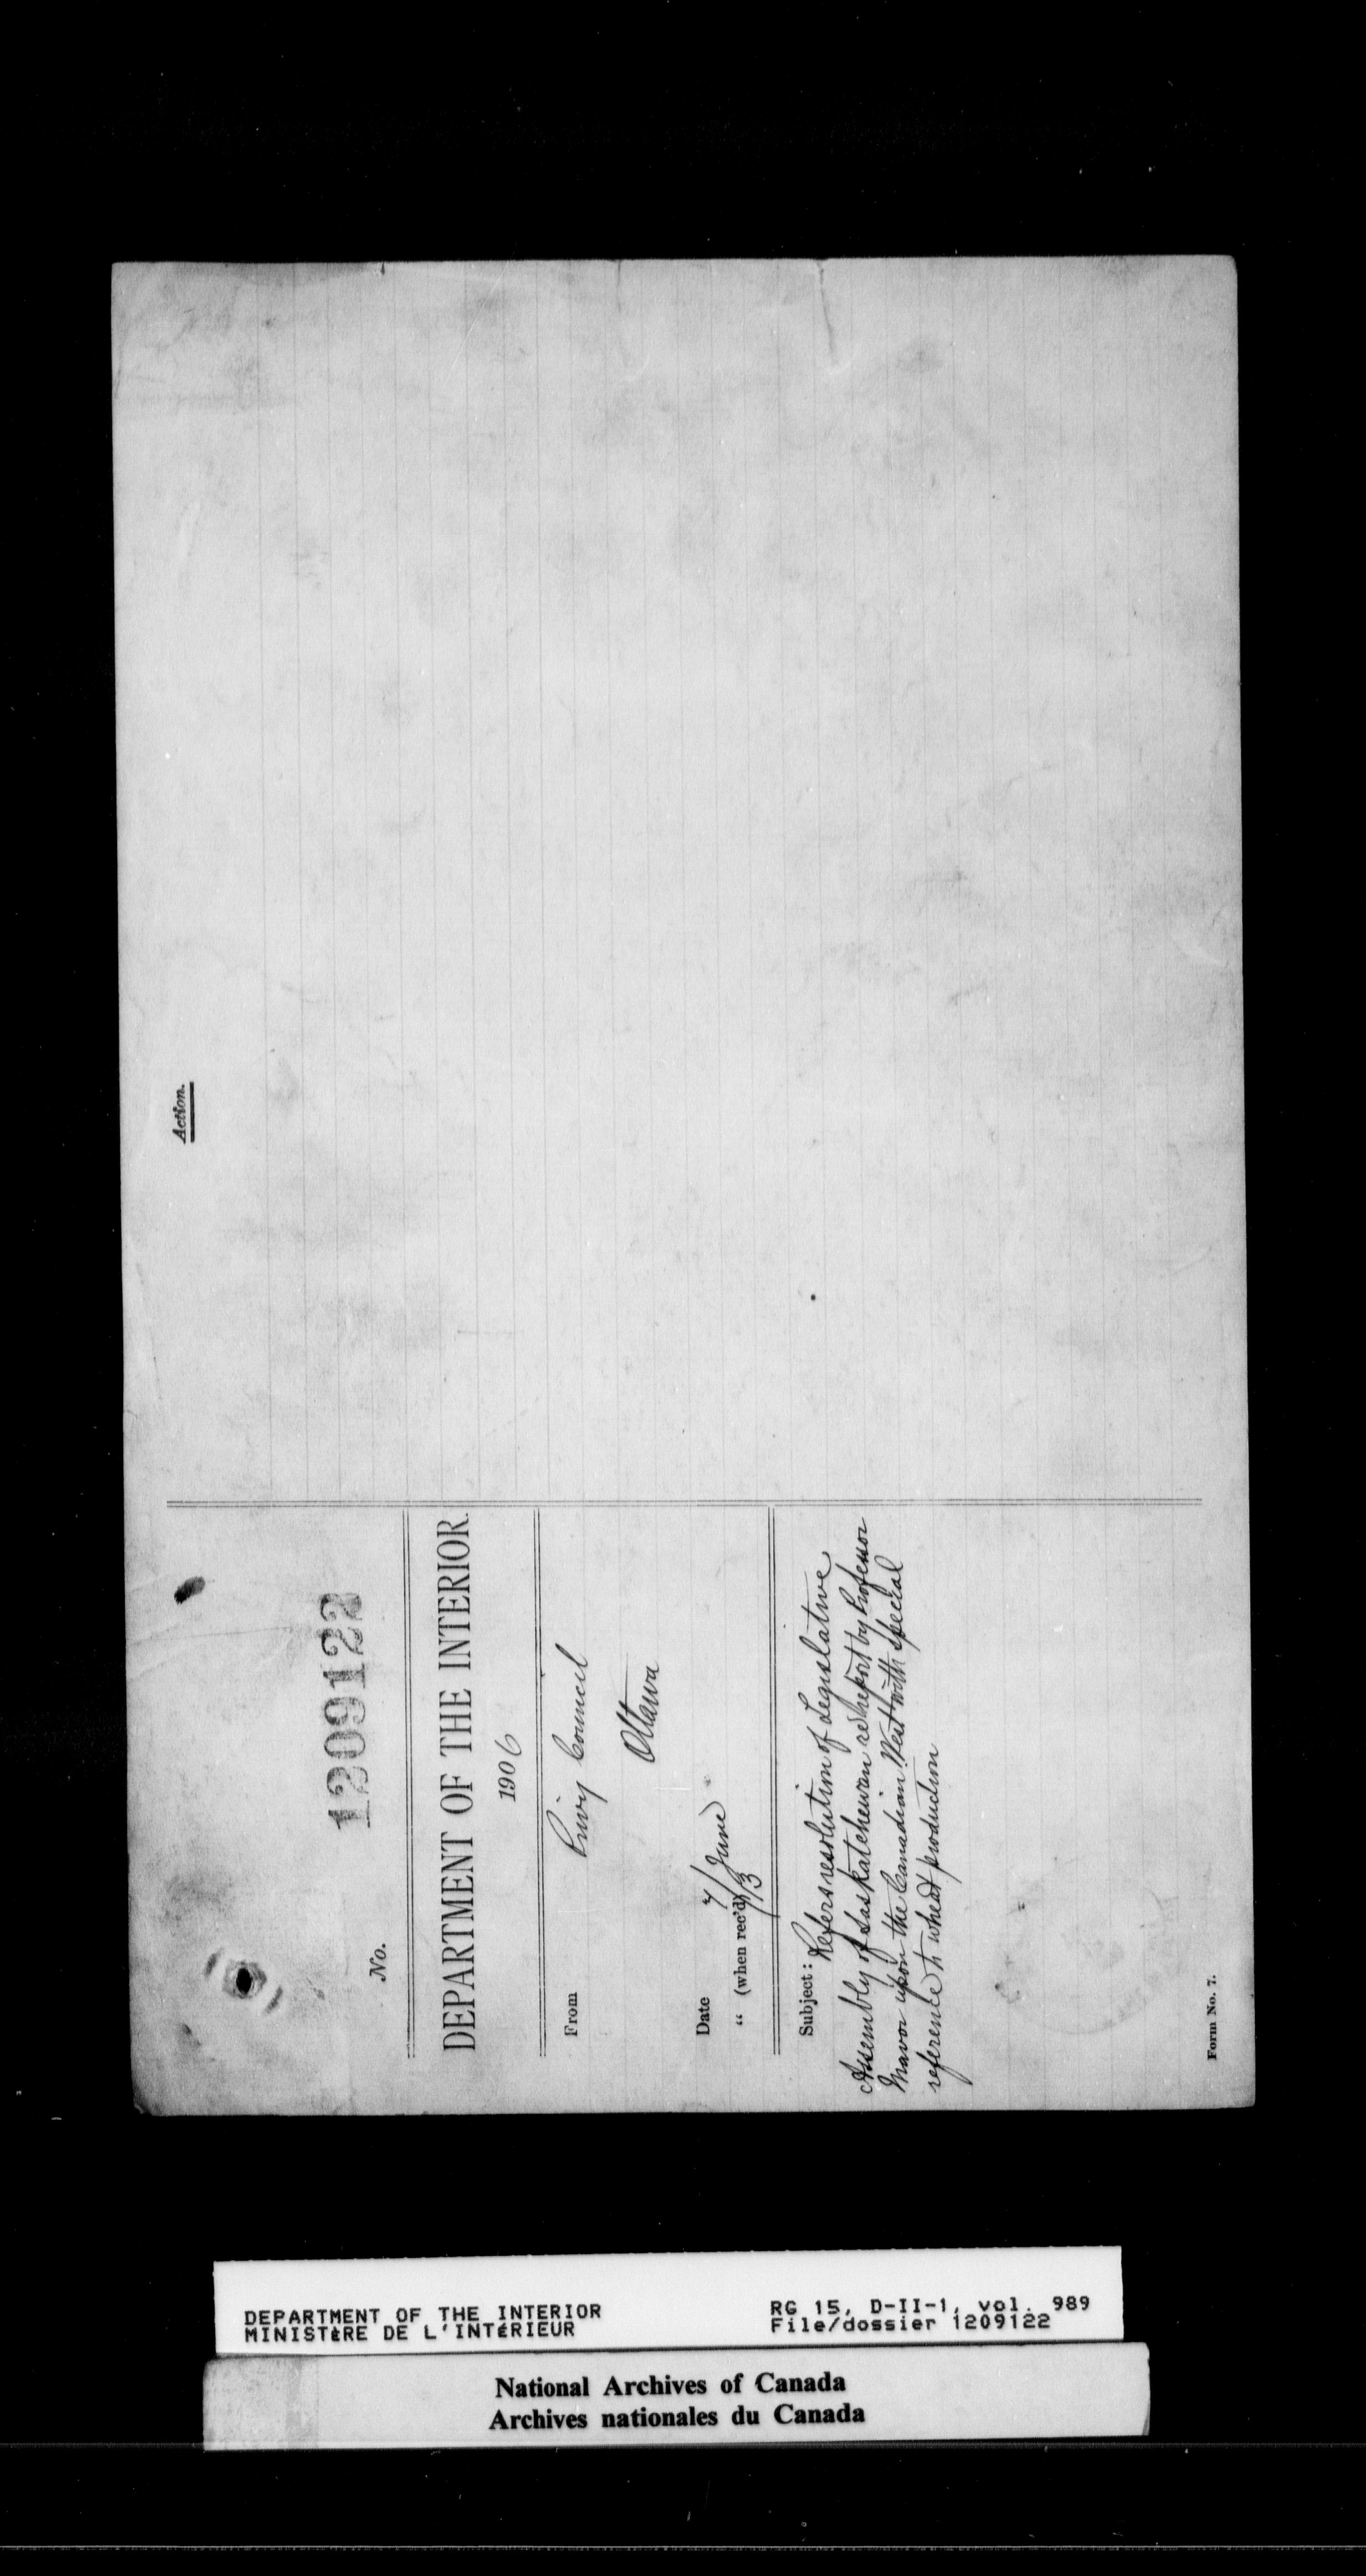 No. 1209122
DEPARTMENT OF THE INTERIOR.
1906
From Privy Council
Ottawa
Date 7/June
" (when rec'd) /13
Subject: Refers resolution of Legislative
Assembly of Saskatchewan re report by Professor
Mavor upon the Canadian West with special
reference to wheat production
Form No. 7.
Action.
DEPARTMENT OF THE INTERIOR
MINISTÈRE DE L'INTÉRIEUR
RG 15, D-II-1, vol. 989
File/dossier 1209122
National Archives of Canada
Archives nationales du Canada